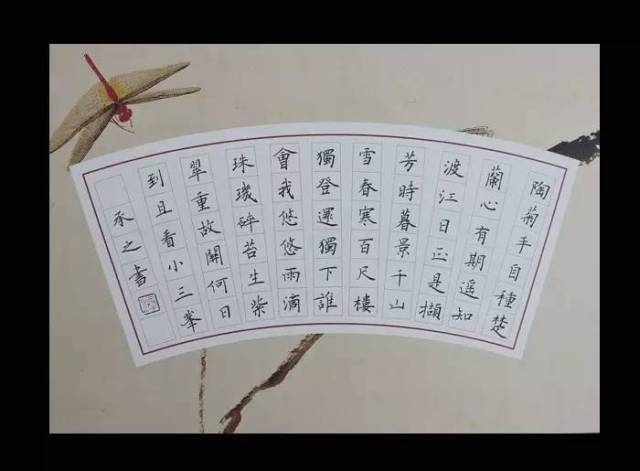 陶菊手自種楚
蘭心有期遥知
渡江日正是擷
芳時暮景千山
雪春寒百尺樓
獨登還獨下誰
會我悠悠雨滴
珠璣碎苔生紫
翠重故關何日
到且看小三峯
承之書